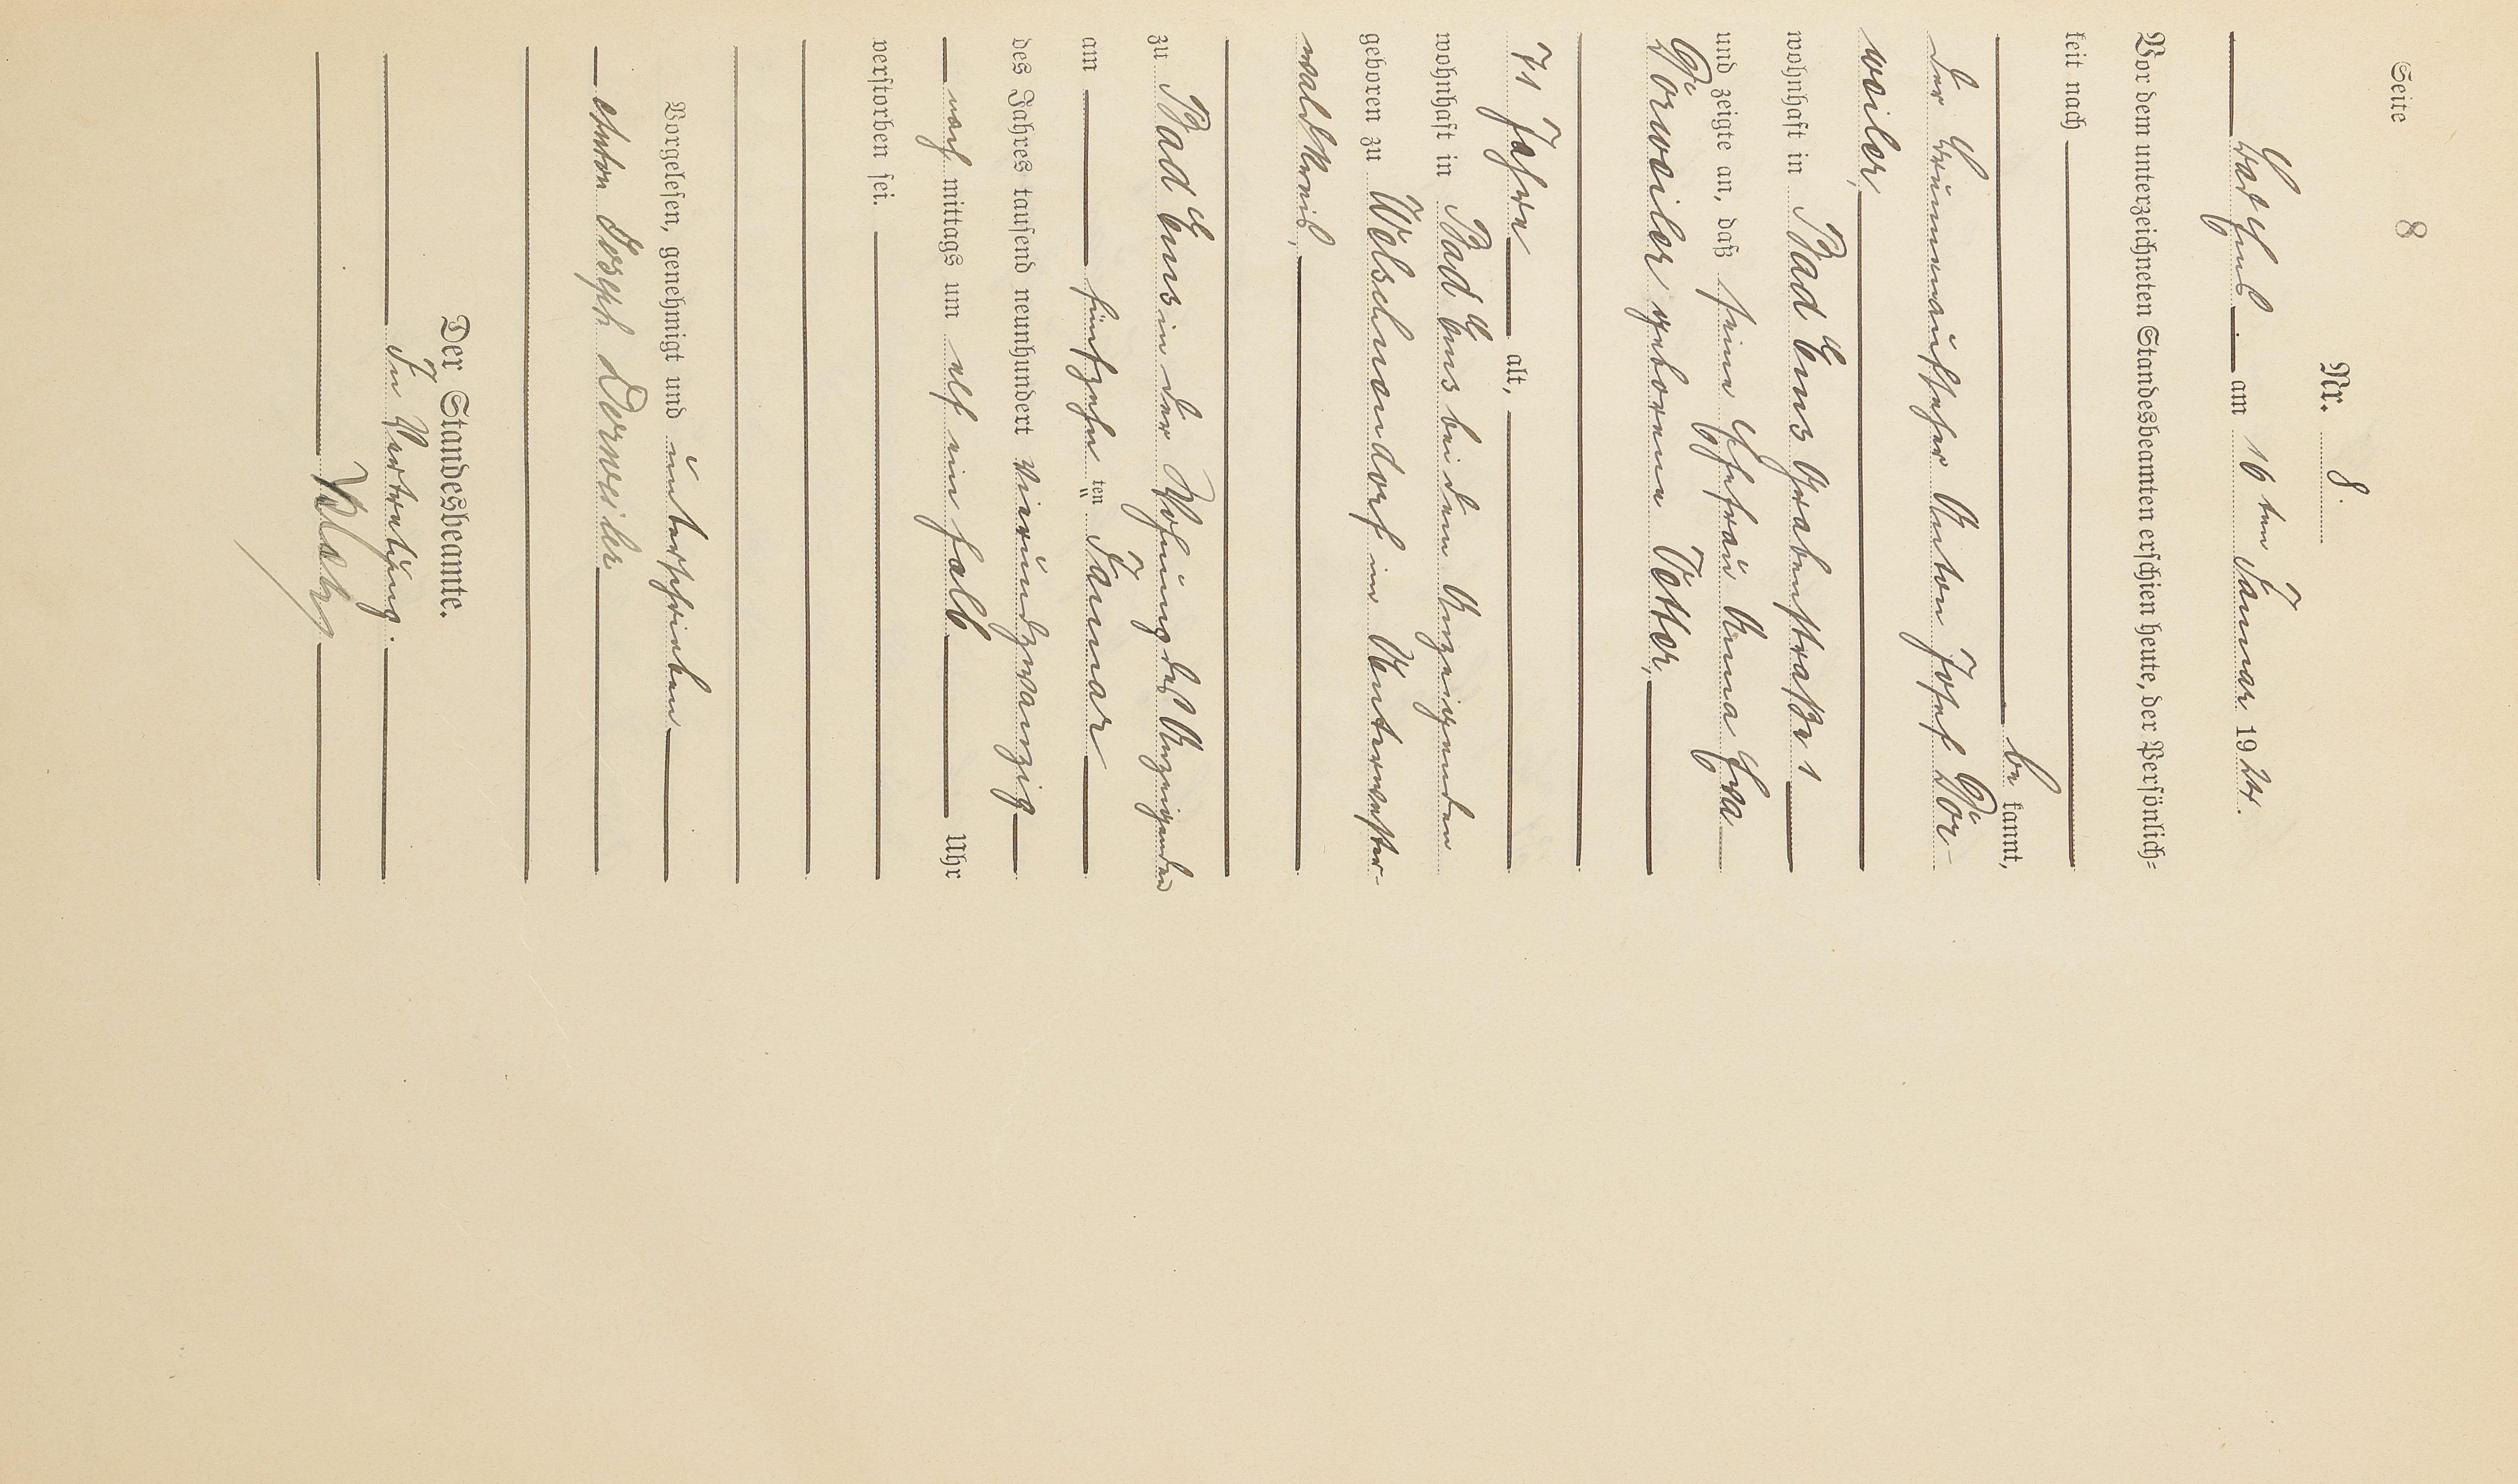 Seite 8
Nr. 8.
Bad Ems. am 16ten Januar 1924.
Vor dem unterzeichneten Standesbeamten erschien heute, der Persönlich-
keit nach
bekannt,
der Brunnenaufseher Anton Josef Dör-
weiler,
wohnhaft in Bad Ems Grabenstraße 1
und zeigte an, daß seine Ehefrau Anna Eva
Dörweiler geborene Vetter,
71 Jahre alt,
wohnhaft in Bad Ems bei dem Anzeigenden
geboren zu Welschneudorf im Unterwester-
waldkreis,
zu Bad Ems in der Wohnung des Anzeigenden
am fünfzehnten Januar
des Jahres tausend neunhundert vierundzwanzig
nachmittags um elf ein halb Uhr
verstorben sei.
Vorgelesen, genehmigt und unterschrieben
Anton Joseph Dorweiler
Der Standesbeamte.
In Vertretung.